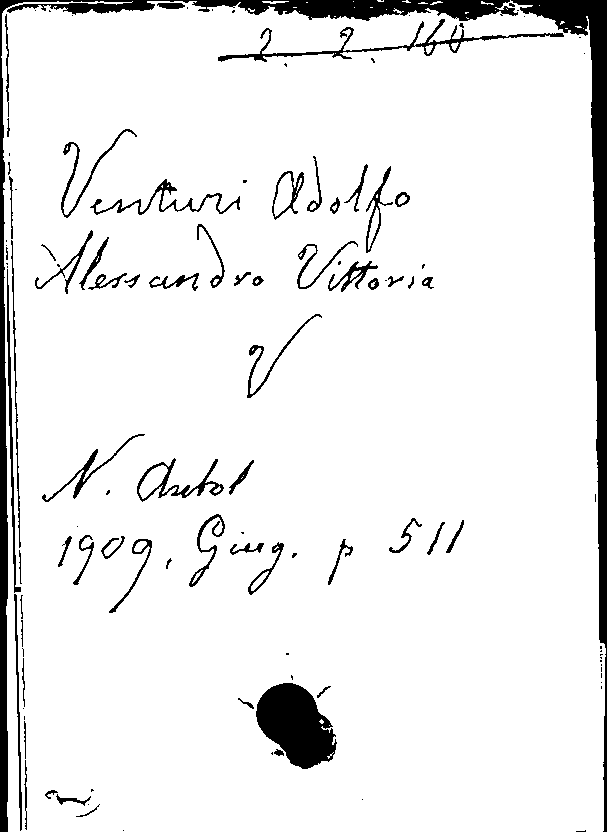 2. 2. 160
Venturi Adolfo
Alessandro Vittoria
V
N. Antol
1909, Giug. p 511